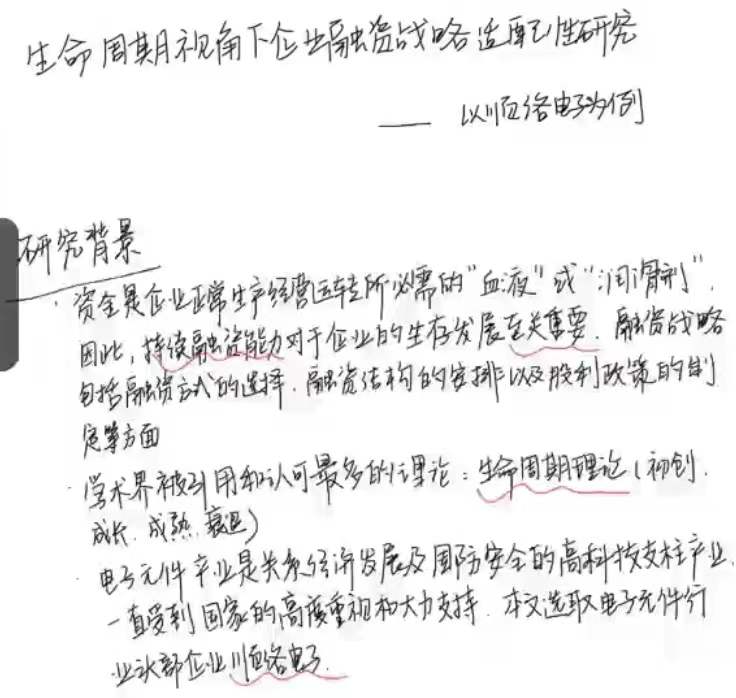 生命周期视角下企业融资战略适配性研究
—— 以顺络电子为例
研究背景
· 资金是企业正常生产经营运转所必需的"血液"或"润滑剂".
因此,持续融资能力对于企业的生存发展至关重要.融资战略
包括融资方式的选择.融资结构的安排以及股利政策的制
定等方面
· 学术界被引用和认可最多的理论:生命周期理论(初创.
成长.成熟.衰退)
· 电子元件产业是关系经济发展及国防安全的高科技支柱产业.
一直受到国家的高度重视和大力支持.本文选取电子元件行
业头部企业顺络电子.